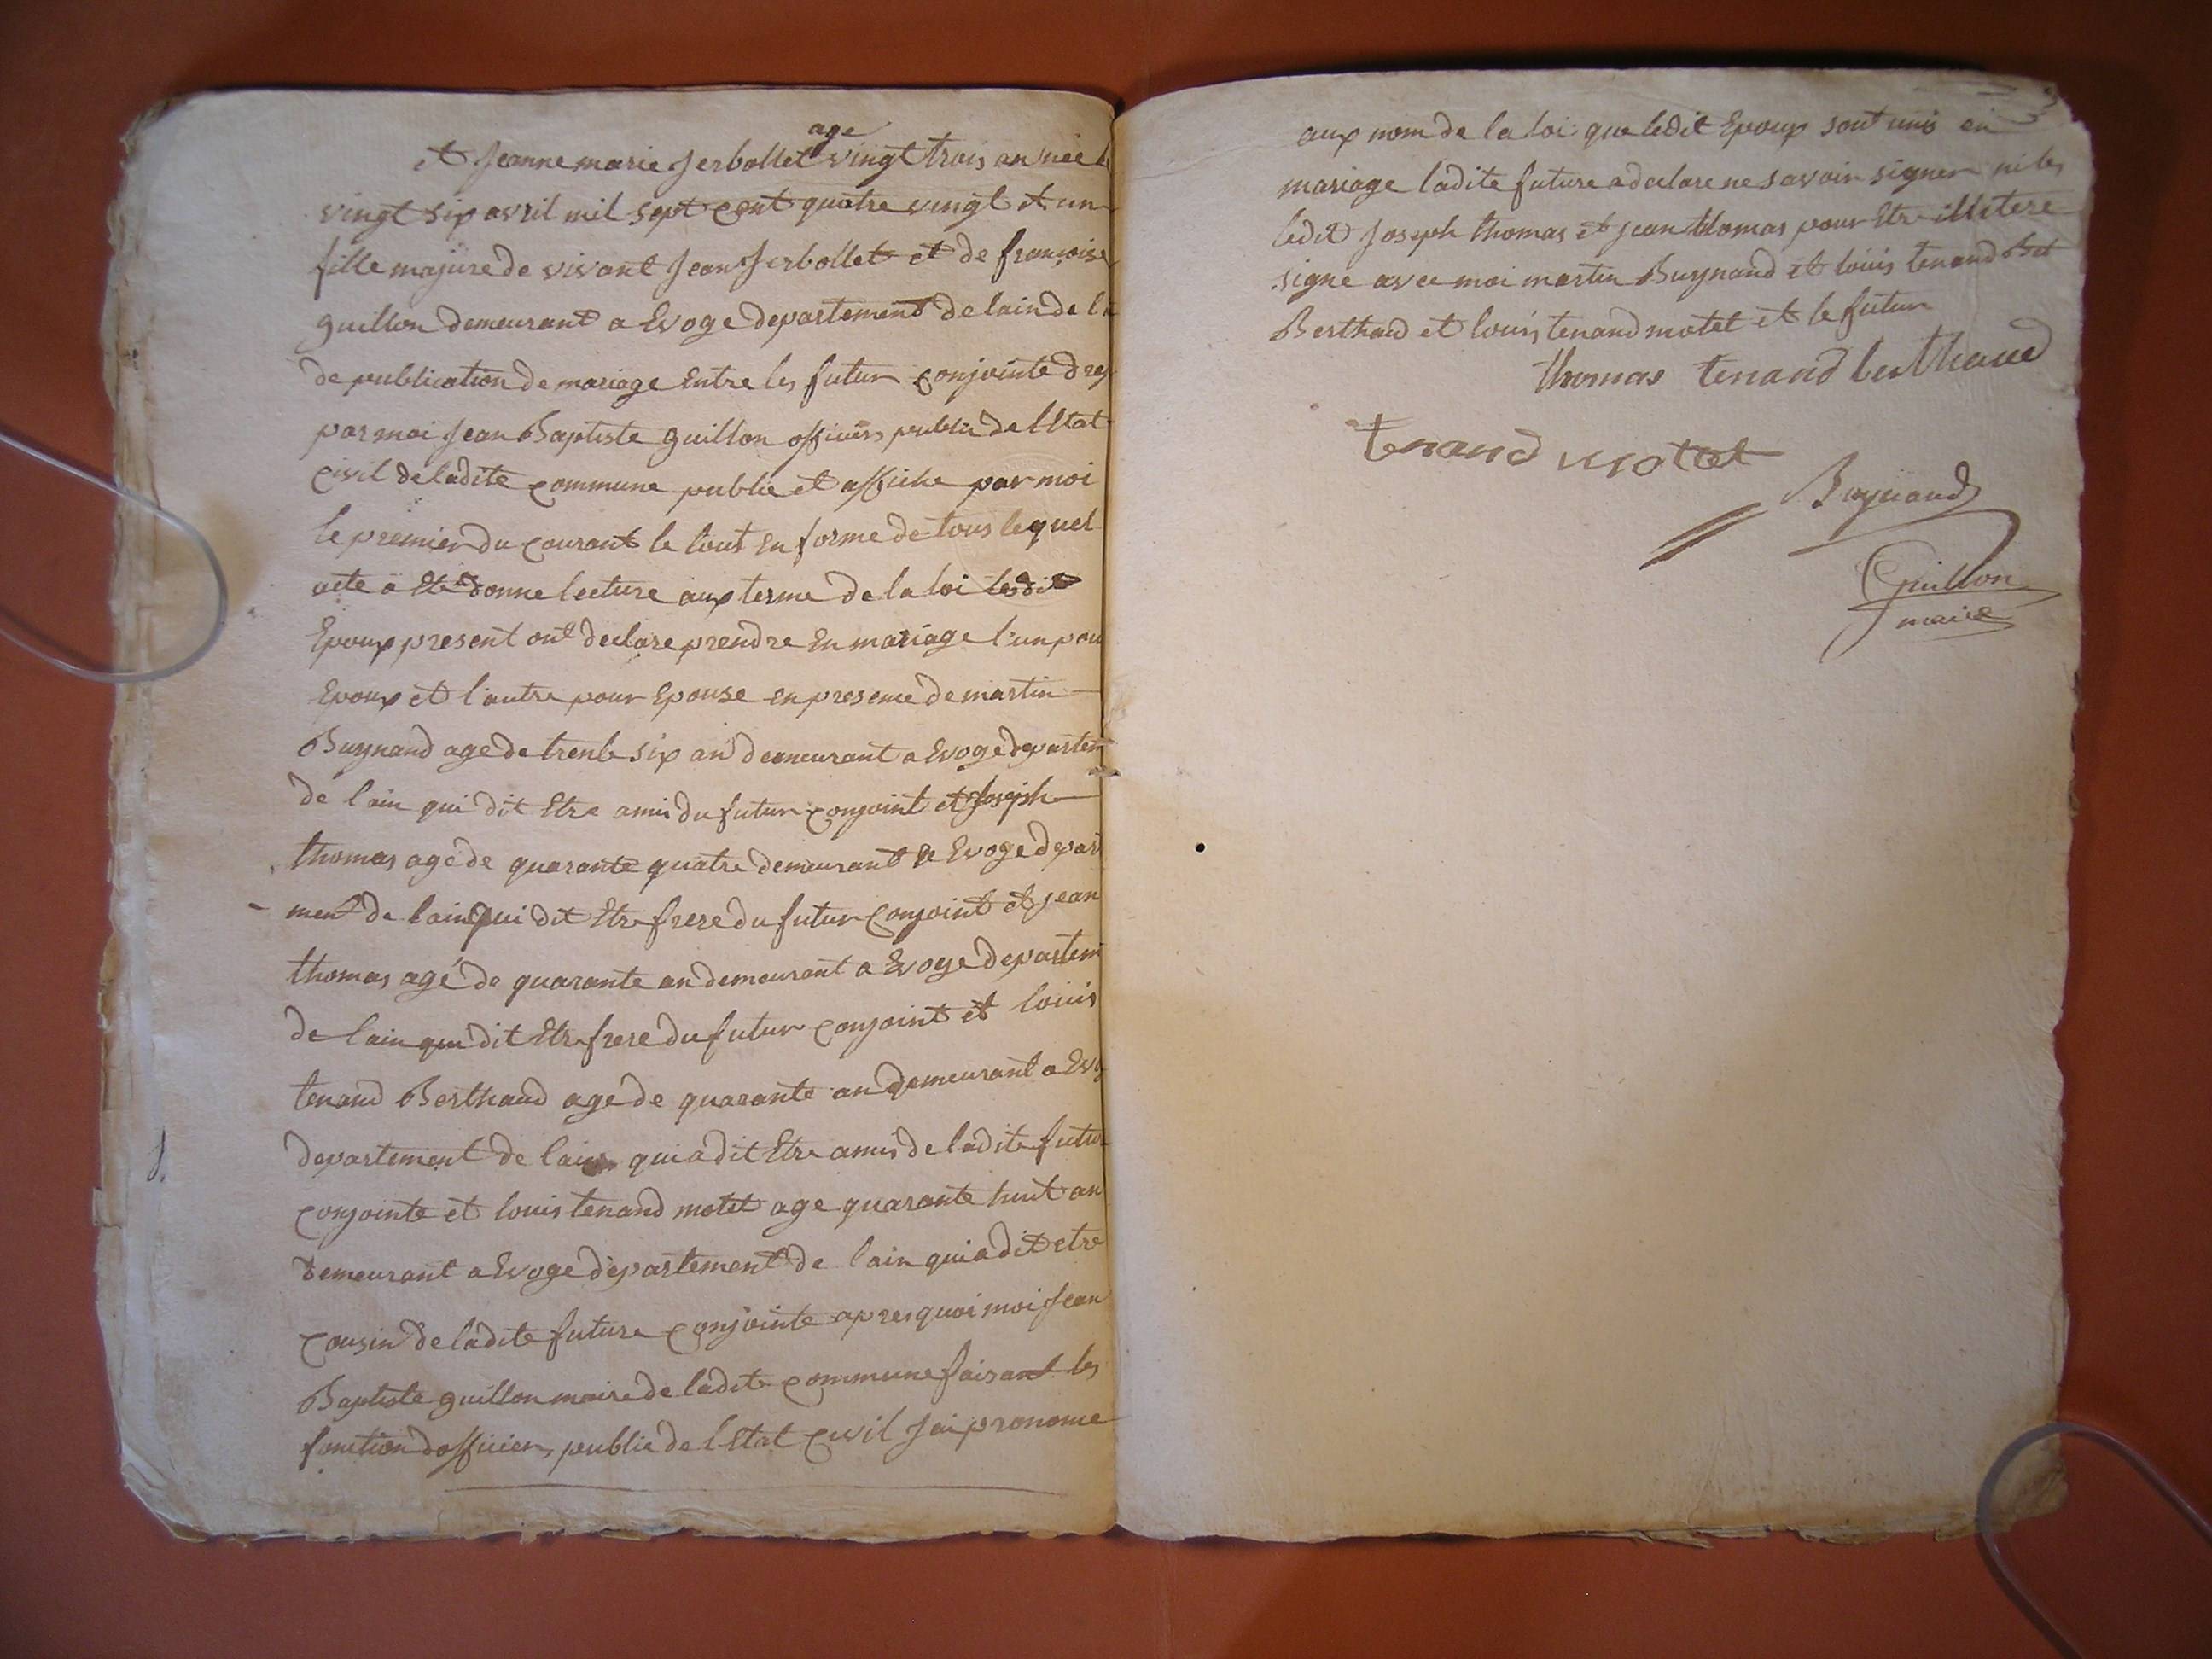 age
et Jeanne marie Jerbollet vingt trois an née le
vingt six avril mil sept cent quatre vingt et un
fille majure de vivant Jean Jerbollet et de françoise
guillon demeurant a Evoge departement de lain de la
de publication de mariage Entre les futur conjointe
par moi Jean Baptiste guillon officiers public de lEtat
civil de ladite commune publie et affiche par moi
le premier du courant le tout En forme de tous lequel
acte a Ete donne lecture aux terme de la loi lesdit
Epoux present ont declare prendre En mariage l'un pour
Epoux et l'autre pour Epouse en presence de martin
Buynand age de trente six an demeurant a Evoge departem
de l'ain qui dit Etre amis du futur conjoint et Joseph
thomas age de quarante quatre demeurant a Evoge depart
ment de lain qui dit Etre frere du futur conjoint et jean
thomas agé de quarante an demeurant a Evoge departem
de lain qui dit Etre frere du futur conjoint et louis
tenand Berthaud age de quarante an demeurant a Evog
departement de lain qui a dit Etre amis de ladite futur
conjointe et louis tenand motet age quarante huit an
demeurant a Evoge departement de l'ain qui a dit etre
cousin de ladite future conjointe apres quoi moi Jean
Baptiste guillon maire de ladite commune faisant les
fonction d officier public de lEtat civil J ai prononce
aux nom de la loi que ledit Epoux sont unis en
mariage ladite future a declare ne savoir signer ni les
ledit Joseph thomas et jean thomas pour Etre illitere
signe avec moi martin Buynand et louis tenand
Berthaud et louis tenand motet et le futur
thomas tenand berthaud
tenand mottet
Buynand
Guillon
maire